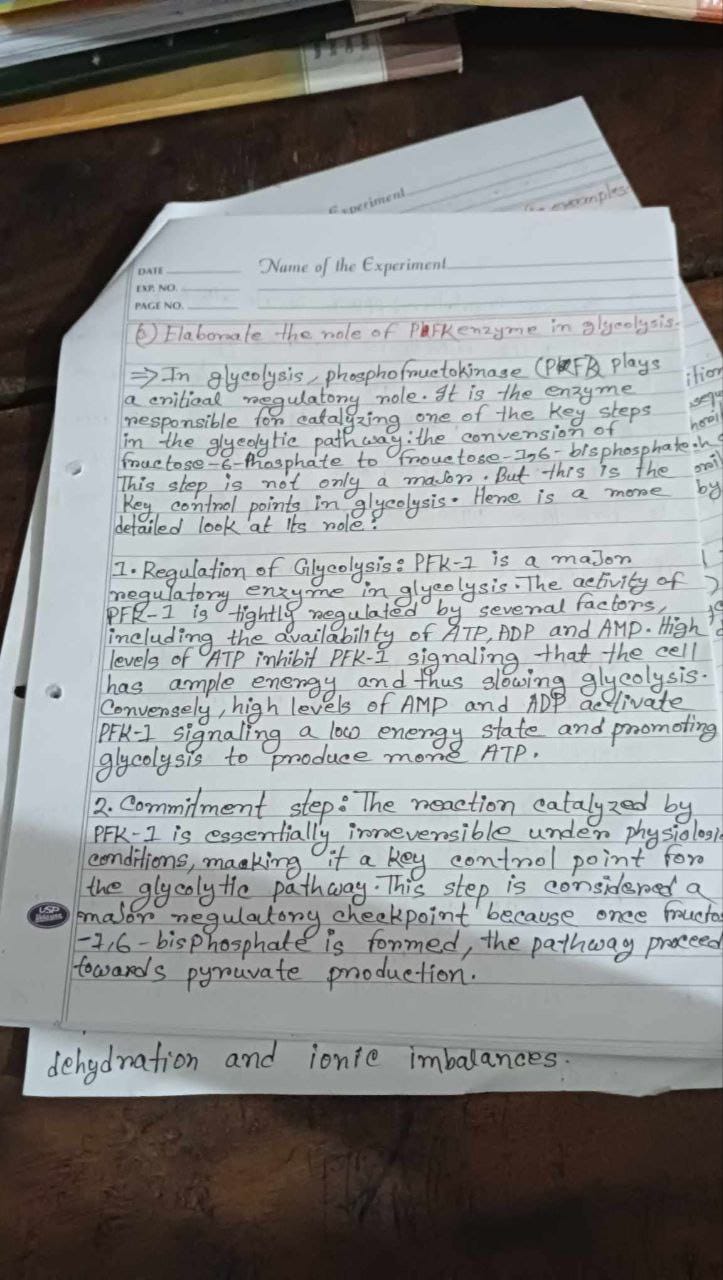 Experiment
examples.
DATE
Name of the Experiment
EXP. NO.
PAGE NO.
b) Elaborate the role of PFK enzyme in glycolysis.
⇒ In glycolysis, phosphofructokinase (PFK) plays
a critical regulatory role. It is the enzyme
responsible for catalyzing one of the key steps
in the glycolytic pathway: the conversion of
fructose-6-Phosphate to frouctose-1,6-bisphosphate.
This step is not only a major. But this is the
Key control points in glycolysis. Here is a more
detailed look at its role:
1. Regulation of Glycolysis: PFK-1 is a major
regulatory enzyme in glycolysis. The activity of
PFK-1 is tightly regulated by several factors,
including the availability of ATP, ADP and AMP. High
levels of ATP inhibit PFK-1 signaling that the cell
has ample energy and thus slowing glycolysis.
Conversely, high levels of AMP and ADP activate
PFK-1 signaling a low energy state and promoting
glycolysis to produce more ATP.
2. Commitment step: The reaction catalyzed by
PFK-1 is essentially irreversible under physiologi
conditions, maaking it a key control point for
the glycolytic pathway. This step is considered a
major regulatory checkpoint because once fructos
-1,6-bisphosphate is formed, the pathway proceed
towards pyruvate production.
USP
dehydration and ionic imbalances.